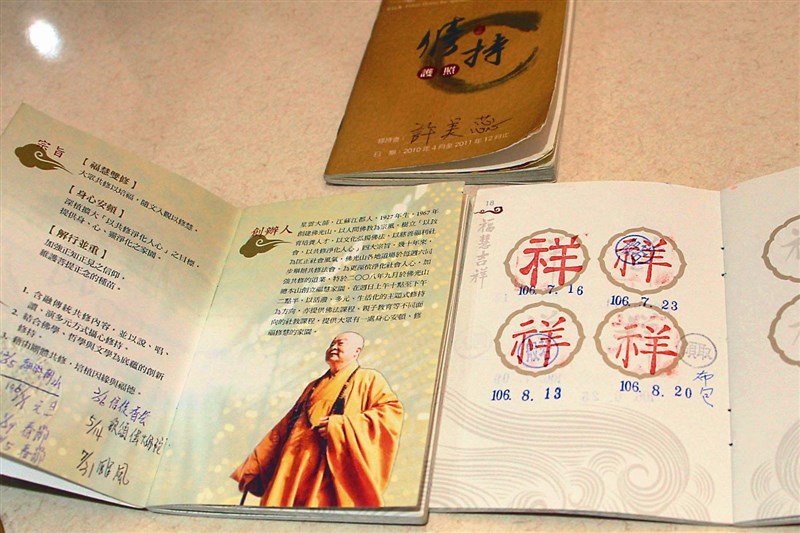 修持
護照
許美蕊
日期：2010年4月至2011年12月止
宗旨
【福慧雙修】
大眾共修以培福，隨文入觀以修慧。
【身心安頓】
深植擴大「以共修淨化人心」之目標，
提供身、心、靈淨化之家園。
【解行並重】
加強正知正見之信仰，
維護菩提正念的種苗。
1. 含融傳統共修內容，並以說、唱、
讀、演多元方式攝心修持。
2. 結合佛學、哲學與文學為底蘊的創新
修持。
3. 藉由團體共修，培植因緣與福德。
元旦
春節
春節
颱風
創辦人
星雲大師，江蘇江都人，1927年生。1967年
創建佛光山，以人間佛教為宗風，樹立「以教
育培養人才，以文化弘揚佛法，以慈善福利社
會，以共修淨化人心」四大宗旨。幾十年來，
為匡正社會風氣，佛光山各地道場於每週六同
步舉辦共修法會。為更深植淨化社會人心，加
強共修的道業，特於二〇〇八年九月於佛光山
總本山創立福慧家園，在週日上午十點至下午
二點半，以活潑、多元、生活化的主題式修持
為方向，亦提供佛法課程、親子教育等不同面
向的社教課程，提供大眾有一處身心安頓、修
福修慧的家園。
18
福慧吉祥
祥
祥
106. 7. 16
106. 7. 23
祥
祥
領取
106. 8. 13
106. 8. 20
布包